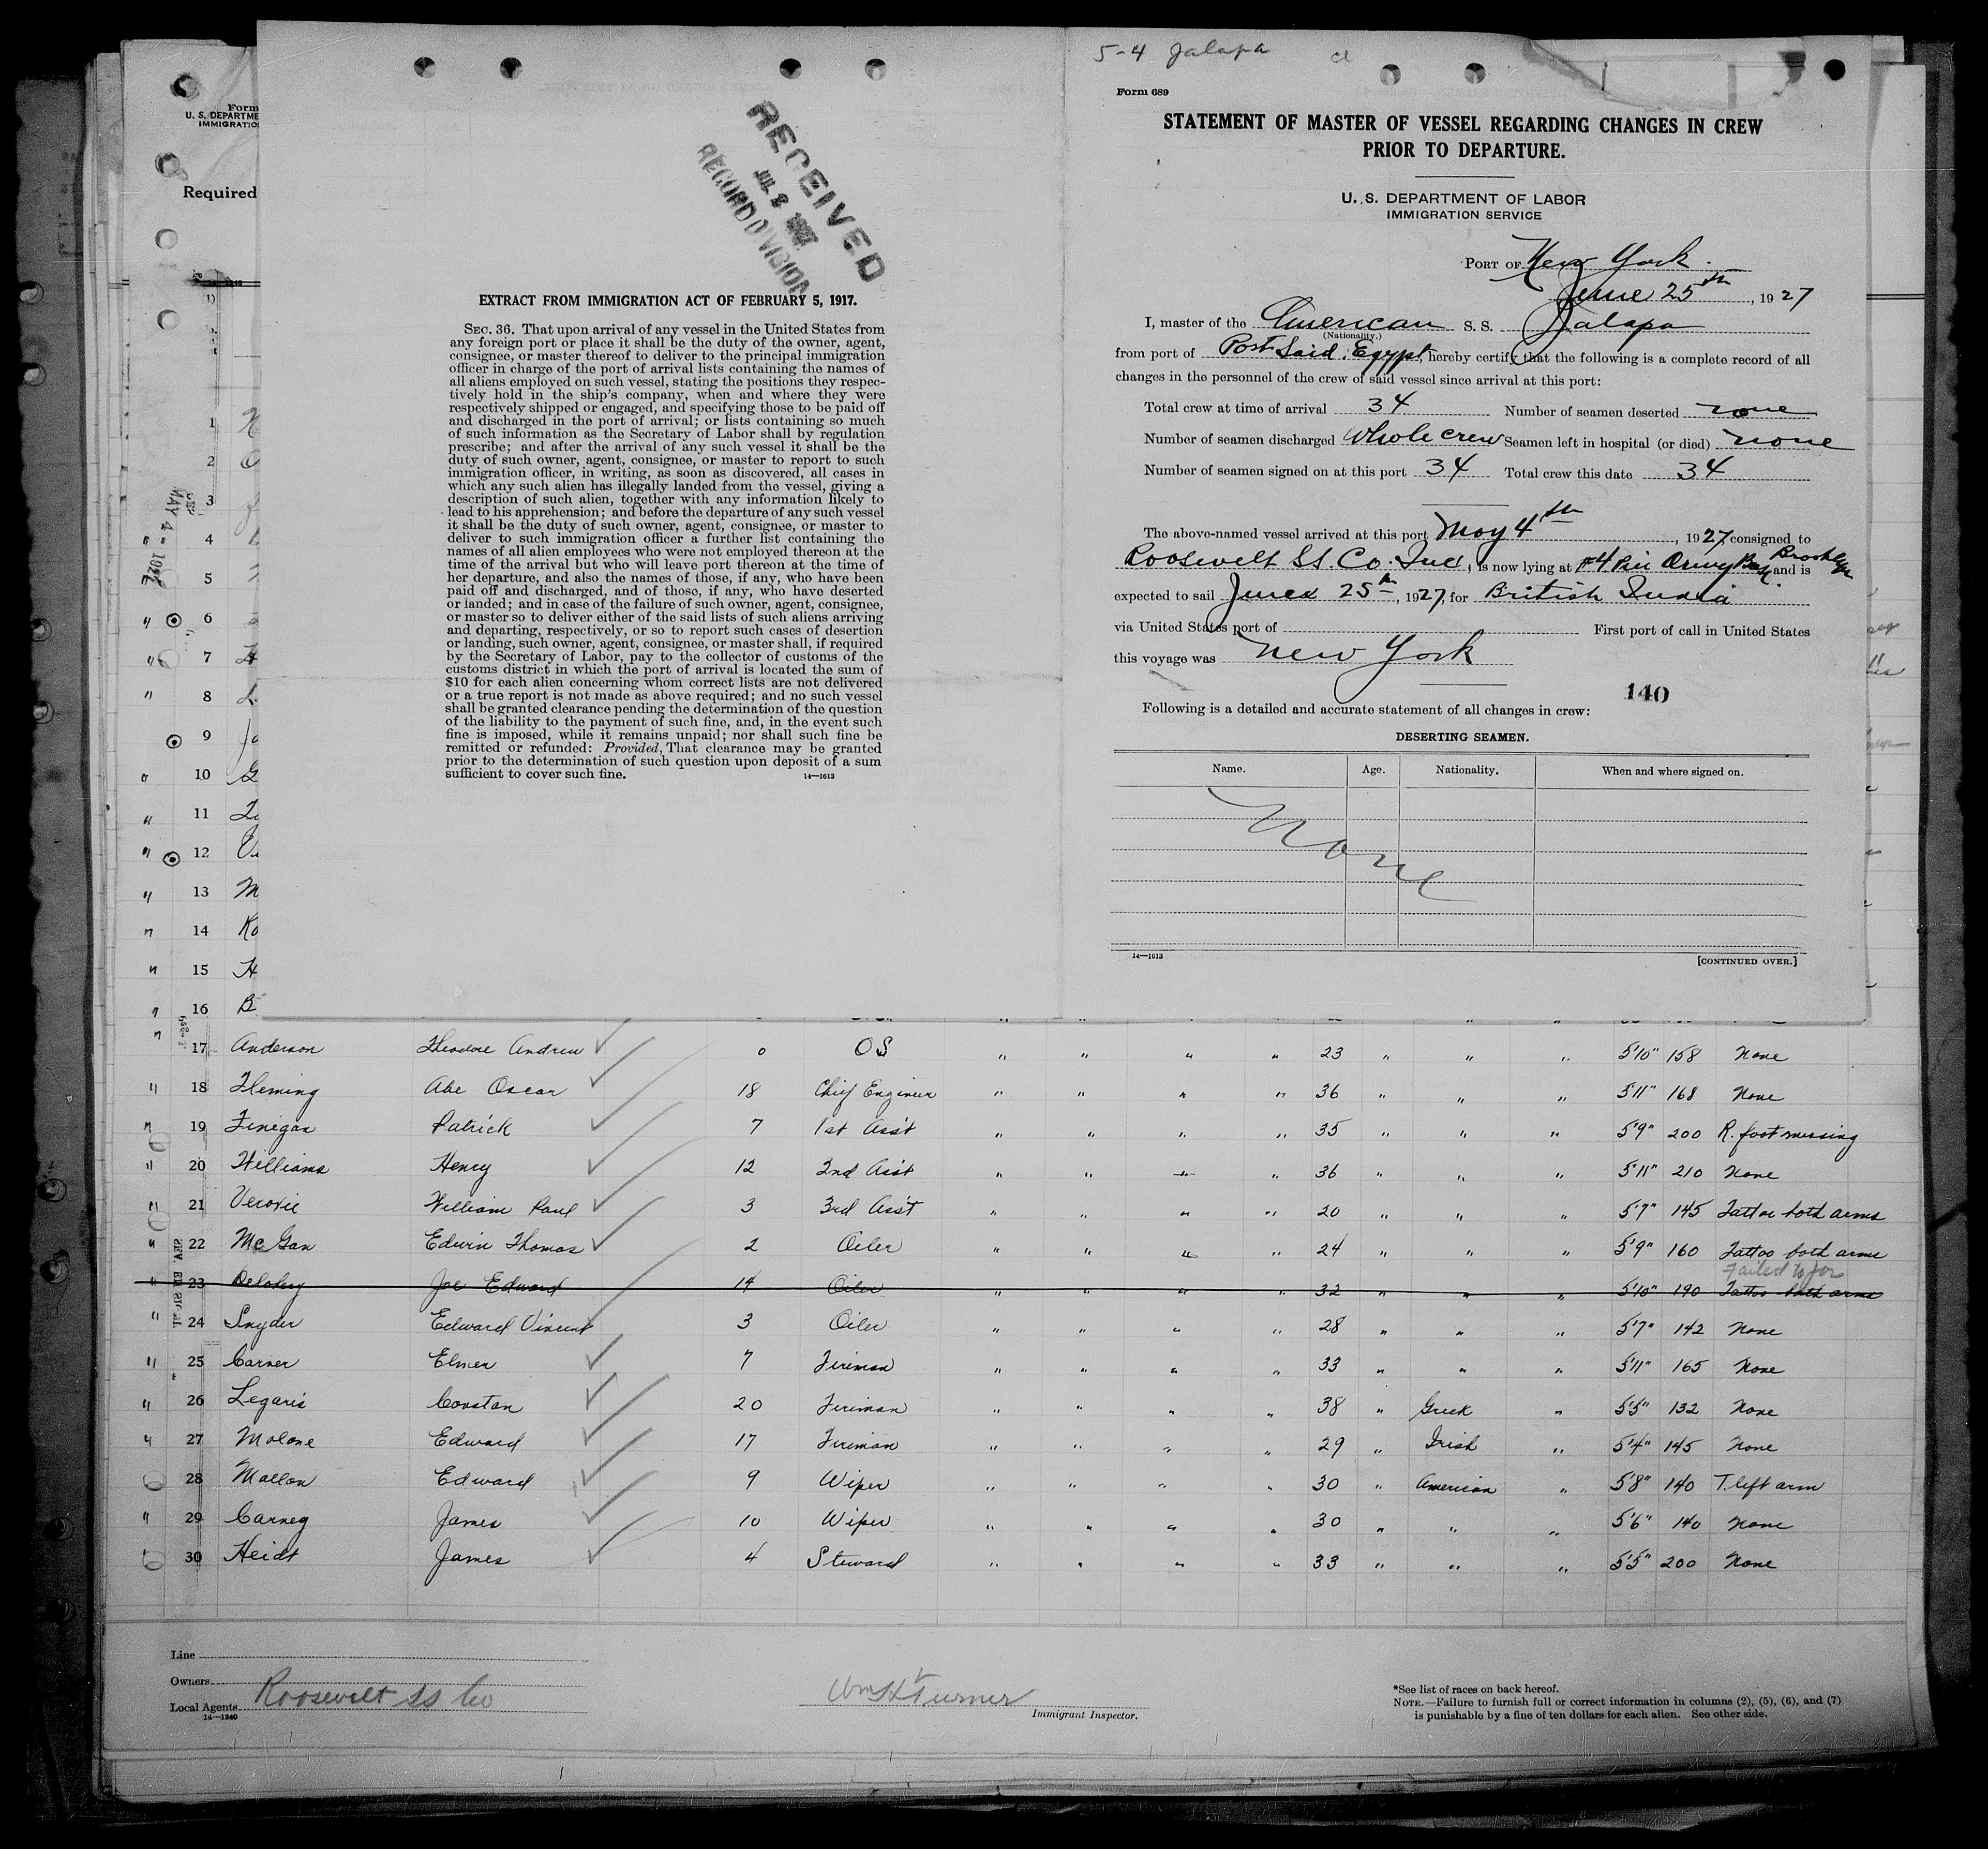 5-4 Jalapa cl
Form 689
STATEMENT OF MASTER OF VESSEL REGARDING CHANGES IN CREW
PRIOR TO DEPARTURE.
U. S. DEPARTMENT OF LABOR
IMMIGRATION SERVICE
PORT OF New York.
June 25th, 1927
I, master of the American S. S. Jalapa
(Nationality.)
from port of Port Said, Egypt, hereby certify that the following is a complete record of all
changes in the personnel of the crew of said vessel since arrival at this port:
Total crew at time of arrival 34 Number of seamen deserted none
Number of seamen discharged Whole crew Seamen left in hospital (or died) none
Number of seamen signed on at this port 34 Total crew this date 34
The above-named vessel arrived at this port May 4th, 1927 consigned to
Roosevelt SS. Co. Inc, is now lying at #4 Pier Army Base Brooklyn and is
expected to sail June 25th, 1927, for British India
via United States port of First port of call in United States
this voyage was New York
140
Following is a detailed and accurate statement of all changes in crew:
DESERTING SEAMEN.
Name. Age. Nationality. When and where signed on.
None
14—1613 [CONTINUED OVER.]
RECEIVED
JUL 2 1927
RECORD DIVISION
EXTRACT FROM IMMIGRATION ACT OF FEBRUARY 5, 1917.
SEC. 36. That upon arrival of any vessel in the United States from
any foreign port or place it shall be the duty of the owner, agent,
consignee, or master thereof to deliver to the principal immigration
officer in charge of the port of arrival lists containing the names of
all aliens employed on such vessel, stating the positions they respec-
tively hold in the ship's company, when and where they were
respectively shipped or engaged, and specifying those to be paid off
and discharged in the port of arrival; or lists containing so much
of such information as the Secretary of Labor shall by regulation
prescribe; and after the arrival of any such vessel it shall be the
duty of such owner, agent, consignee, or master to report to such
immigration officer, in writing, as soon as discovered, all cases in
which any such alien has illegally landed from the vessel, giving a
description of such alien, together with any information likely to
lead to his apprehension; and before the departure of any such vessel
it shall be the duty of such owner, agent, consignee, or master to
deliver to such immigration officer a further list containing the
names of all alien employees who were not employed thereon at the
time of the arrival but who will leave port thereon at the time of
her departure, and also the names of those, if any, who have been
paid off and discharged, and of those, if any, who have deserted
or landed; and in case of the failure of such owner, agent, consignee,
or master so to deliver either of the said lists of such aliens arriving
and departing, respectively, or so to report such cases of desertion
or landing, such owner, agent, consignee, or master shall, if required
by the Secretary of Labor, pay to the collector of customs of the
customs district in which the port of arrival is located the sum of
$10 for each alien concerning whom correct lists are not delivered
or a true report is not made as above required; and no such vessel
shall be granted clearance pending the determination of the question
of the liability to the payment of such fine, and, in the event such
fine is imposed, while it remains unpaid; nor shall such fine be
remitted or refunded: Provided, That clearance may be granted
prior to the determination of such question upon deposit of a sum
sufficient to cover such fine. 14—1613
Form
U. S. DEPARTME
IMMIGRATIO
Required
MAY 4 - 1927
1
2
3
4
5
6
7
8
9
10
11
12
13
14
15
16
17 Anderson Theodore Andrew 0 OS " " " " 23 " " " 5'10" 158 None
" 18 Fleming Abe Oscar 18 Chief Engineer " " " " 36 " " " 5'11" 168 None
19 Finegan Patrick 7 1st Ass't " " " " 35 " " " 5'9" 200 R. foot missing
" 20 Williams Henry 12 2nd Ass't " " " " 36 " " " 5'11" 210 None
" 21 Veroxie William Paul 3 3rd Ass't " " " " 20 " " " 5'7" 145 Tattoo both arms
" 22 McGan Edwin Thomas 2 Oiler " " " " 24 " " " 5'9" 160 Tattoo both arms
Failed to join
" 23 Joe Edward 14 Oiler " " " " 32 " " " 5'10" 190 Tattoo both arms
" 24 Snyder Edward Vincent 3 Oiler " " " " 28 " " " 5'7" 142 None
" 25 Carner Elmer 7 Fireman " " " " 33 " " " 5'11" 165 None
" 26 Legaris Constan 20 Fireman " " " " 38 " Greek " 5'5" 132 None
" 27 Molone Edward 17 Fireman " " " " 29 " Irish " 5'4" 145 None
28 Mallon Edward 9 Wiper " " " " 30 " American " 5'8" 140 T. left arm
" 29 Carneg James 10 Wiper " " " " 30 " " " 5'6" 140 None
30 Heidt James 4 Steward " " " " 33 " " " 5'5" 200 None
Line
Owners
Local Agents Roosevelt SS Co
14—1240
Wm H Turner
Immigrant Inspector.
*See list of races on back hereof.
NOTE.—Failure to furnish full or correct information in columns (2), (5), (6), and (7)
is punishable by a fine of ten dollars for each alien. See other side.